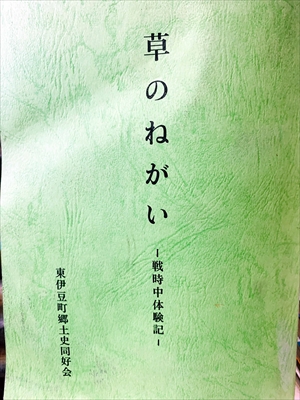 草のねがい
-戦時中体験記-
東伊豆町郷土史同好会